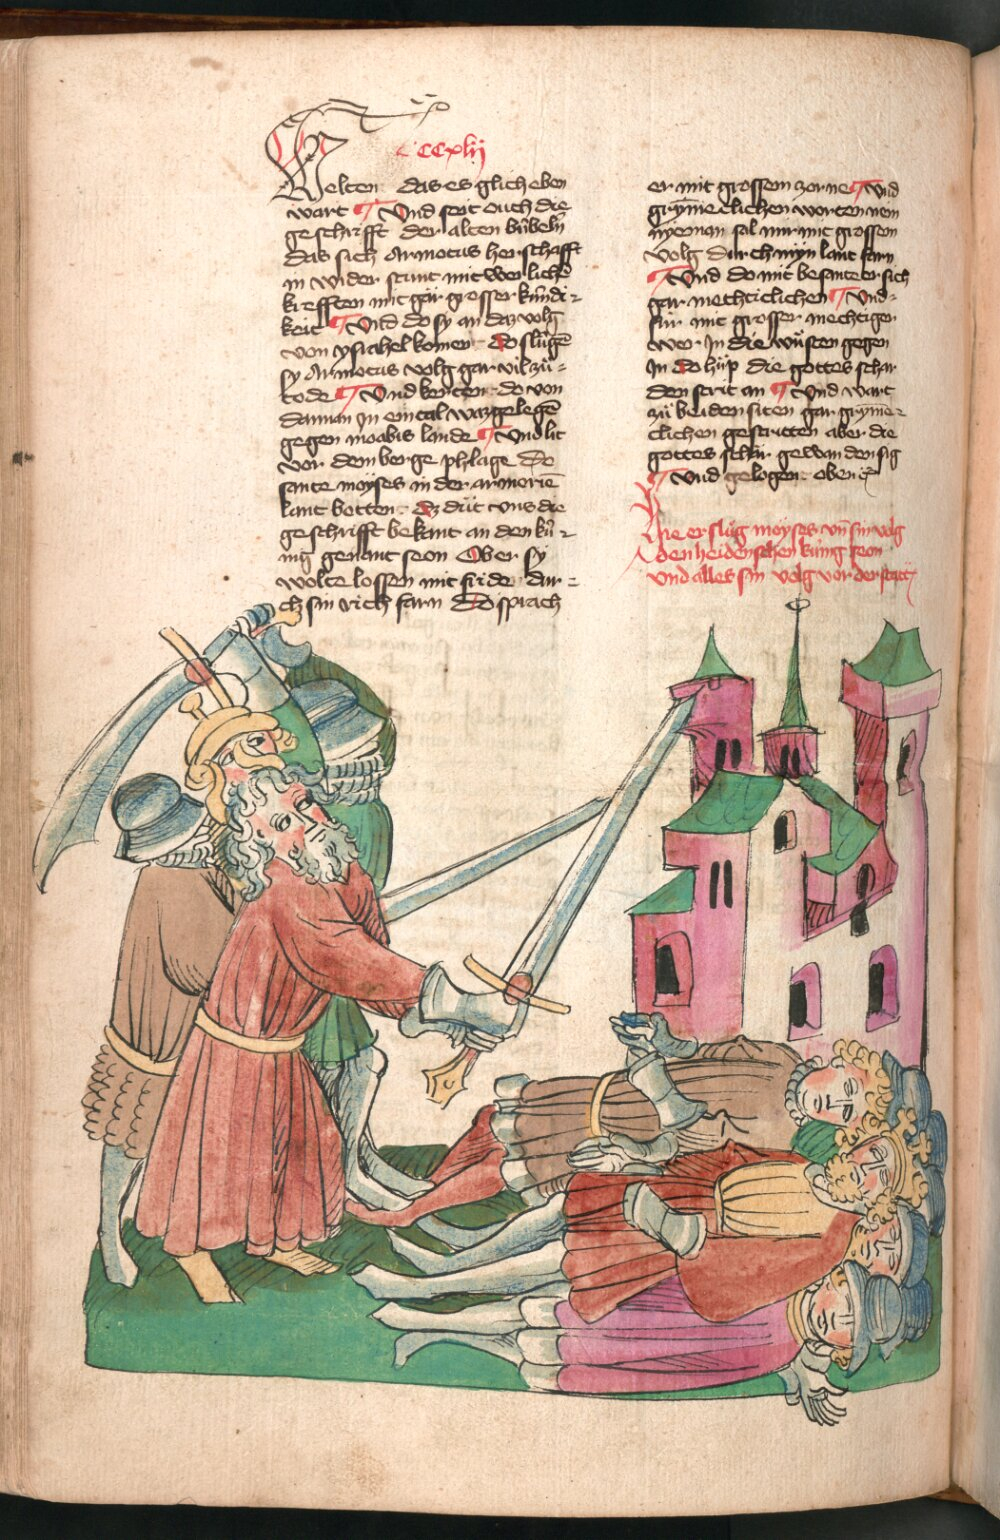 CCCxlij
Welten das es glich eben
wart Und seit ouch die
geschrifft der alten bůbelň
das sich Armotus herschafft
in wider stunt mit werlichē
krefften mit gar grosser kündi-
keit Und do sy an daz volg
von ysrahel komen do slůgē
sy Armotus volg gar vil zů-
tode Und kerten do von
dannan In ein tal waz gelegē
gegen moabis lande Und lit
vor dem berge phlage Do
sante moyses in der armeriē
lant botten dz düt uns die
geschrifft bekant an den kü-
nig genant seon Ober sy
wolte lossen mit fride dur-
ch sin rich farn Do sprach
er mit grossem zorne Und
grymeclichen worten nein
nyeman sol mir mit grossem
volg durch myn lant farn
Und do mit besante er sich
gar mechteclichen Und
für mit grosser mechtiger
wer In die wůsten gegen
In do hůp die gottes schar
den strit an Und wart
zů beiden siten gar gryme-
clichen gestritten aber die
gottes schar gewan den sig
Und gelogen oben
Hie erslůg moyses vnd sin volg
den heidenschen küng seon
Und alles sin volg vor der statt